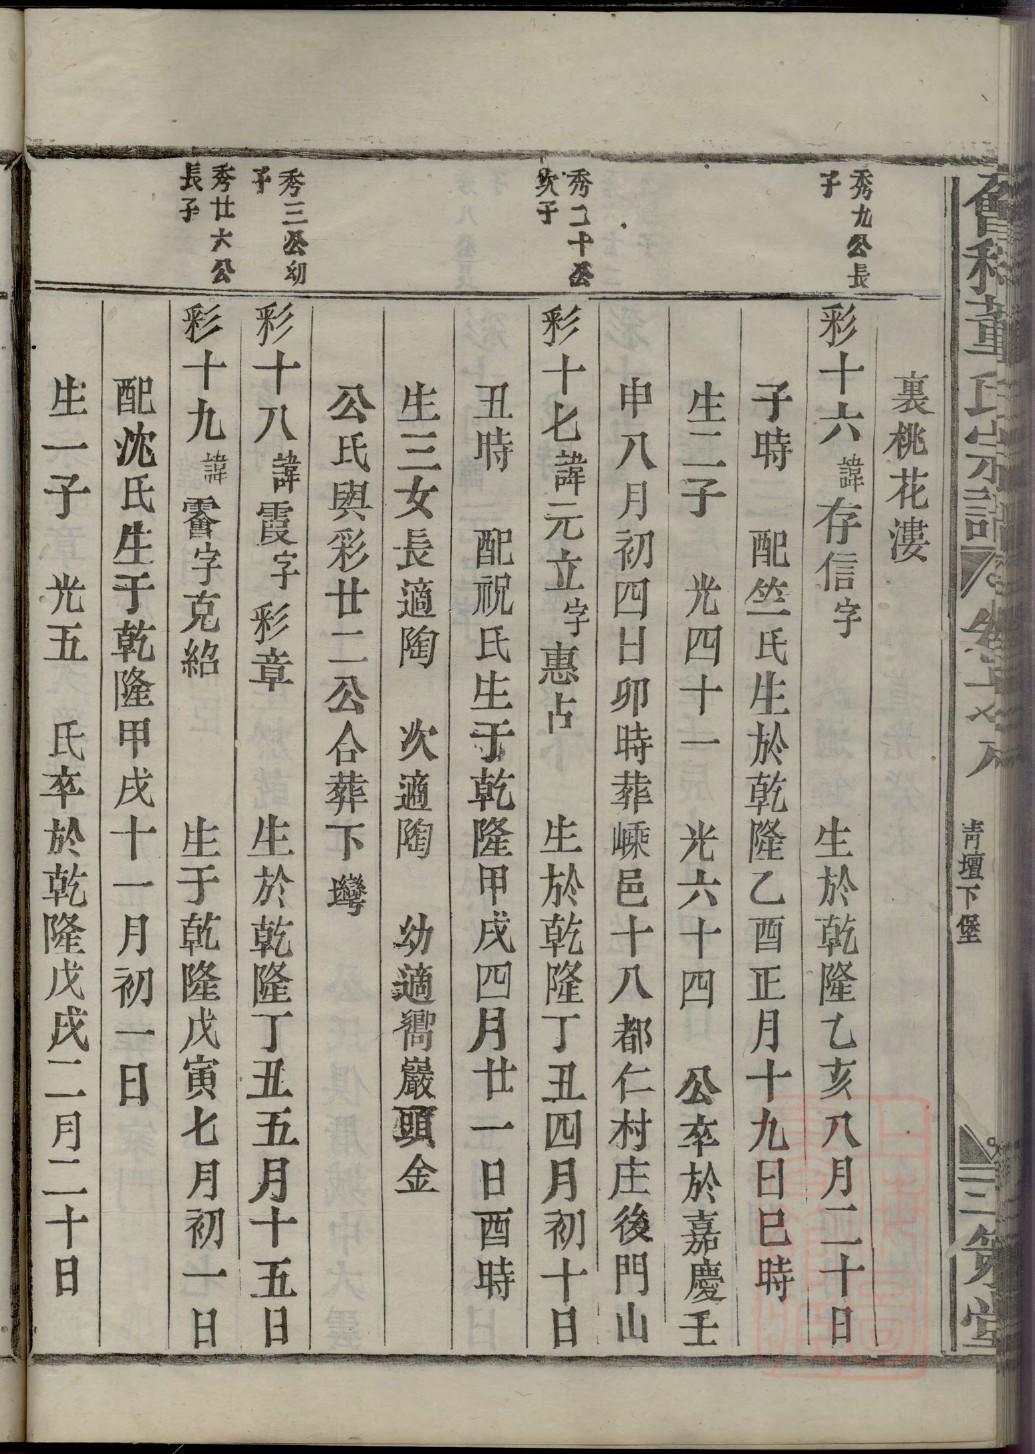 會稽董氏宗譜
青壇下堡
三策堂
裏桃花漊
秀九公長
子
彩十六諱存信字 生於乾隆乙亥八月二十日
子時 配竺氏生於乾隆乙酉正月十九日巳時
生二子 光四十一 光六十四 公卒於嘉慶壬
申八月初四日卯時葬嵊邑十八都仁村庄後門山
秀二十公
次子
彩十七諱元立字惠占 生於乾隆丁丑四月初十日
丑時 配祝氏生于乾隆甲戌四月廿一日酉時
生三女長適陶 次適陶 幼適嚮巖頭金
公氏與彩廿二公合葬下灣
秀三公幼
子
彩十八諱霞字彩章 生於乾隆丁丑五月十五日
秀廿六公
長子
彩十九諱霱字克紹 生于乾隆戊寅七月初一日
配沈氏生于乾隆甲戌十一月初一日
生一子 光五 氏卒於乾隆戊戌二月二十日